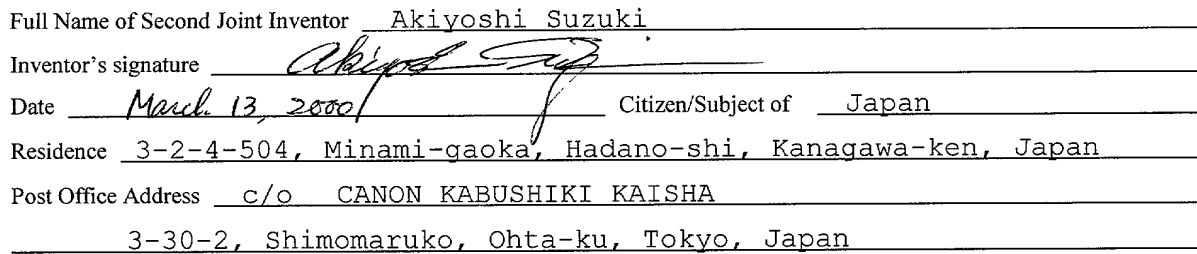 Full Name of Second Joint Inventor Akiyoshi Suzuki
Inventor's signature Akiyoshi Suzuki
Date March 13, 2000 Citizen/Subject of Japan
Residence 3-2-4-504, Minami-gaoka, Hadano-shi, Kanagawa-ken, Japan
Post Office Address c/o CANON KABUSHIKI KAISHA
3-30-2, Shimomaruko, Ohta-ku, Tokyo, Japan